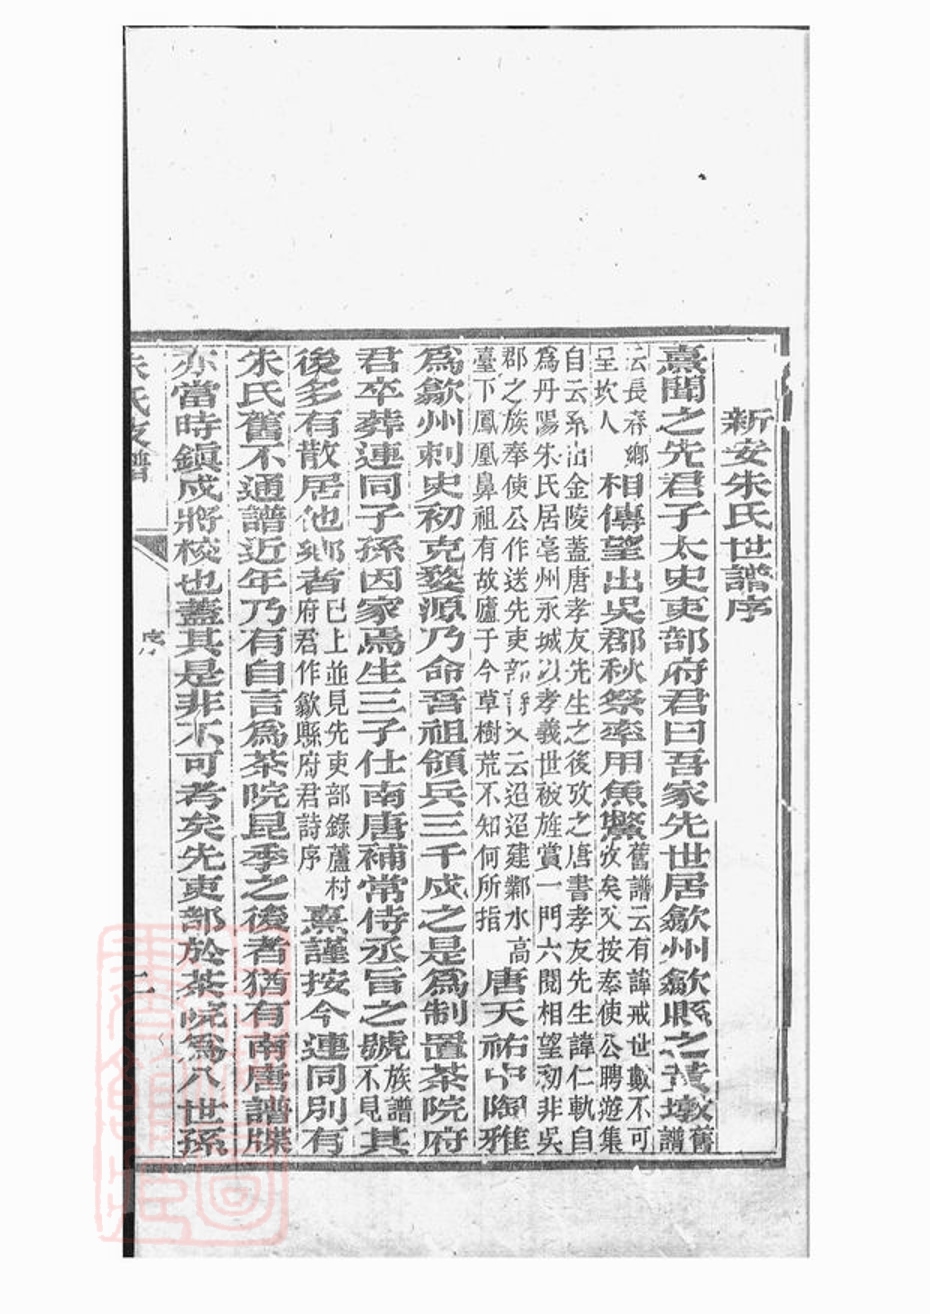 新安朱氏世譜序
熹聞之先君子太史吏部府君曰吾家先世居歙州歙縣之黃墩舊譜
云長春鄉
呈坎人
相傳望出吳郡秋祭率用魚鱉
舊譜云有諱戒世數不可
攷矣又按奉使公聘遊集
自云系出金陵蓋唐孝友先生之後攷之唐書孝友先生諱仁軌自
為丹陽朱氏居亳州永城以孝義世被旌賞一門六闕相望初非吳
郡之族奉使公作送先吏部詩又云迢迢建鄴水高
臺下鳳凰鼻祖有故廬于今草樹荒不知何所指
唐天祐中陶雅
為歙州刺史初克婺源乃命吾祖領兵三千戍之是為制置茶院府
君卒葬連同子孫因家焉生三子仕南唐補常侍丞旨之號
族譜
不見
其
後多有散居他鄉者
已上並見先吏部錄蘆村
府君作歙縣府君詩序
熹謹按今連同別有
朱氏舊不通譜近年乃有自言為茶院昆季之後者猶有南唐譜牒
亦當時鎮戍將校也蓋其是非不可考矣先吏部於茶院為八世孫
朱氏支譜
序
二